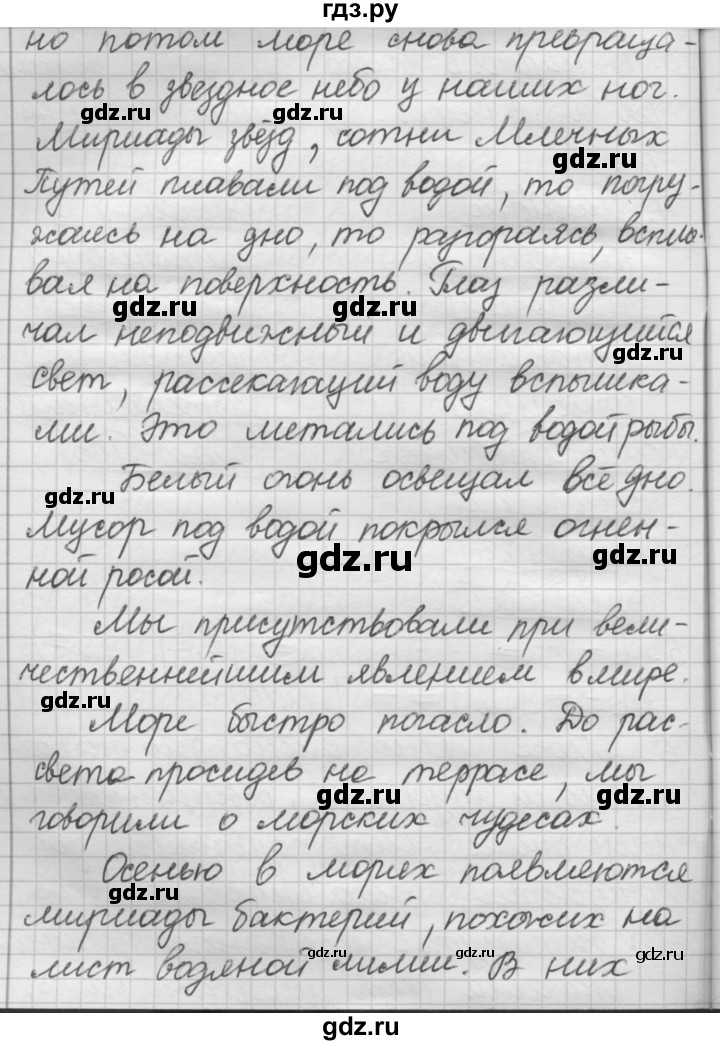 гдз.ру
но потом море снова превраща-
лось в звездное небо у наших ног.
gdz.ru gdz.ru
Мириады звёзд, сотни Млечных
gdz.ru
Путей плавали под водой, то погру-
жаясь на дно, то разгораясь, всплы-
вая на поверхность. Глаз разли-
gdz.ru gdz.ru
чал неподвижный и двигающийся
gdz.ru
свет, рассекающий воду вспышка-
ми. Это метались под водой рыбы.
Белый огонь освещал всё дно.
gdz.ru
Мусор под водой покрылся огнен-
gdz.ru gdz.ru
ной росой.
Мы присутствовали при вели-
чественнейшим явлением в мире.
gdz.ru
Море быстро погасло. До рас-
света просидев на террасе, мы
gdz.ru gdz.ru
говорили о морских чудесах
Осенью в морях появляются
gdz.ru
мириады бактерий, похожих на
gdz.ru gdz.ru gdz.ru
лист водяной лилии. В них
gdz.ru